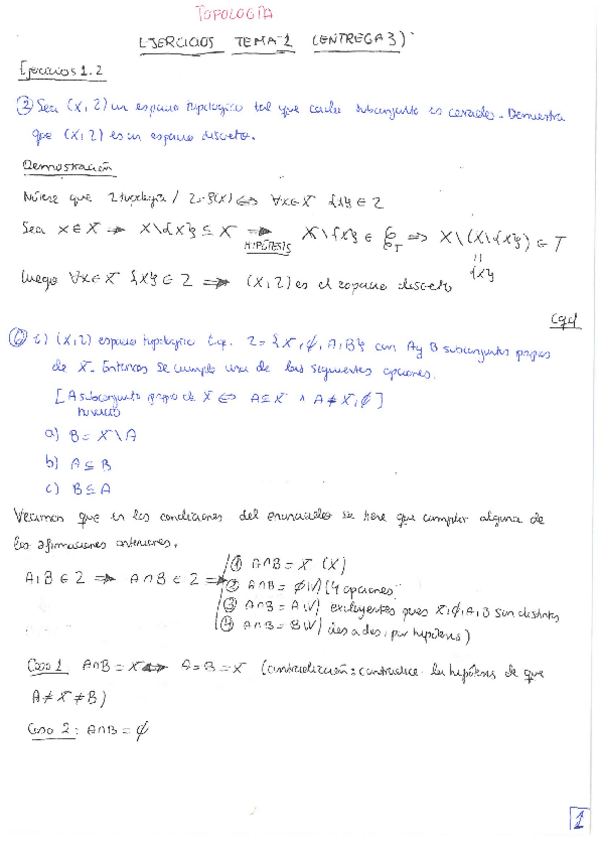 TOPOLOGÍA
EJERCICIOS TEMA 1 (ENTREGA 3)
Ejercicios 1.2
② Sea (X,τ) un espacio topológico tal que cada subconjunto es cerrado. Demuestra
que (X,τ) es un espacio discreto.
Demostración
Nótese que τ topología / τ=P(X) ⟺ ∀x∈X {x} ∈ τ
Sea x∈X → X\{x} ⊆ X ⟹ X\{x} ∈ C_T ⟹ X\(X\{x}) ∈ T
HIPÓTESIS
{x}
Luego ∀x∈X {x} ∈ τ ⟹ (X,τ) es el espacio discreto
cqd
⑥ i) (X,τ) espacio topológico t.q. τ = {X, ∅, A, B} con A y B subconjuntos propios
de X. Entonces se cumple una de las siguientes opciones.
[A subconjunto propio de X ⟺ A⊆X ∧ A≠X,∅]
a) B = X\A
b) A ⊆ B
c) B ⊆ A
Veamos que en las condiciones del enunciado se tiene que cumplir alguna de
las afirmaciones anteriores.
A,B ∈ τ ⟹ A∩B ∈ τ ⟹
① A∩B = X (X)
② A∩B = ∅ V) (4 opciones
③ A∩B = A V) excluyentes pues X,∅,A,B son distintos
④ A∩B = B V) dos a dos, por hipótesis)
Caso 1 A∩B = X ⟺ A=B=X (contradicción: contradice la hipótesis de que
A ≠ X ≠ B)
Caso 2: A∩B = ∅
1